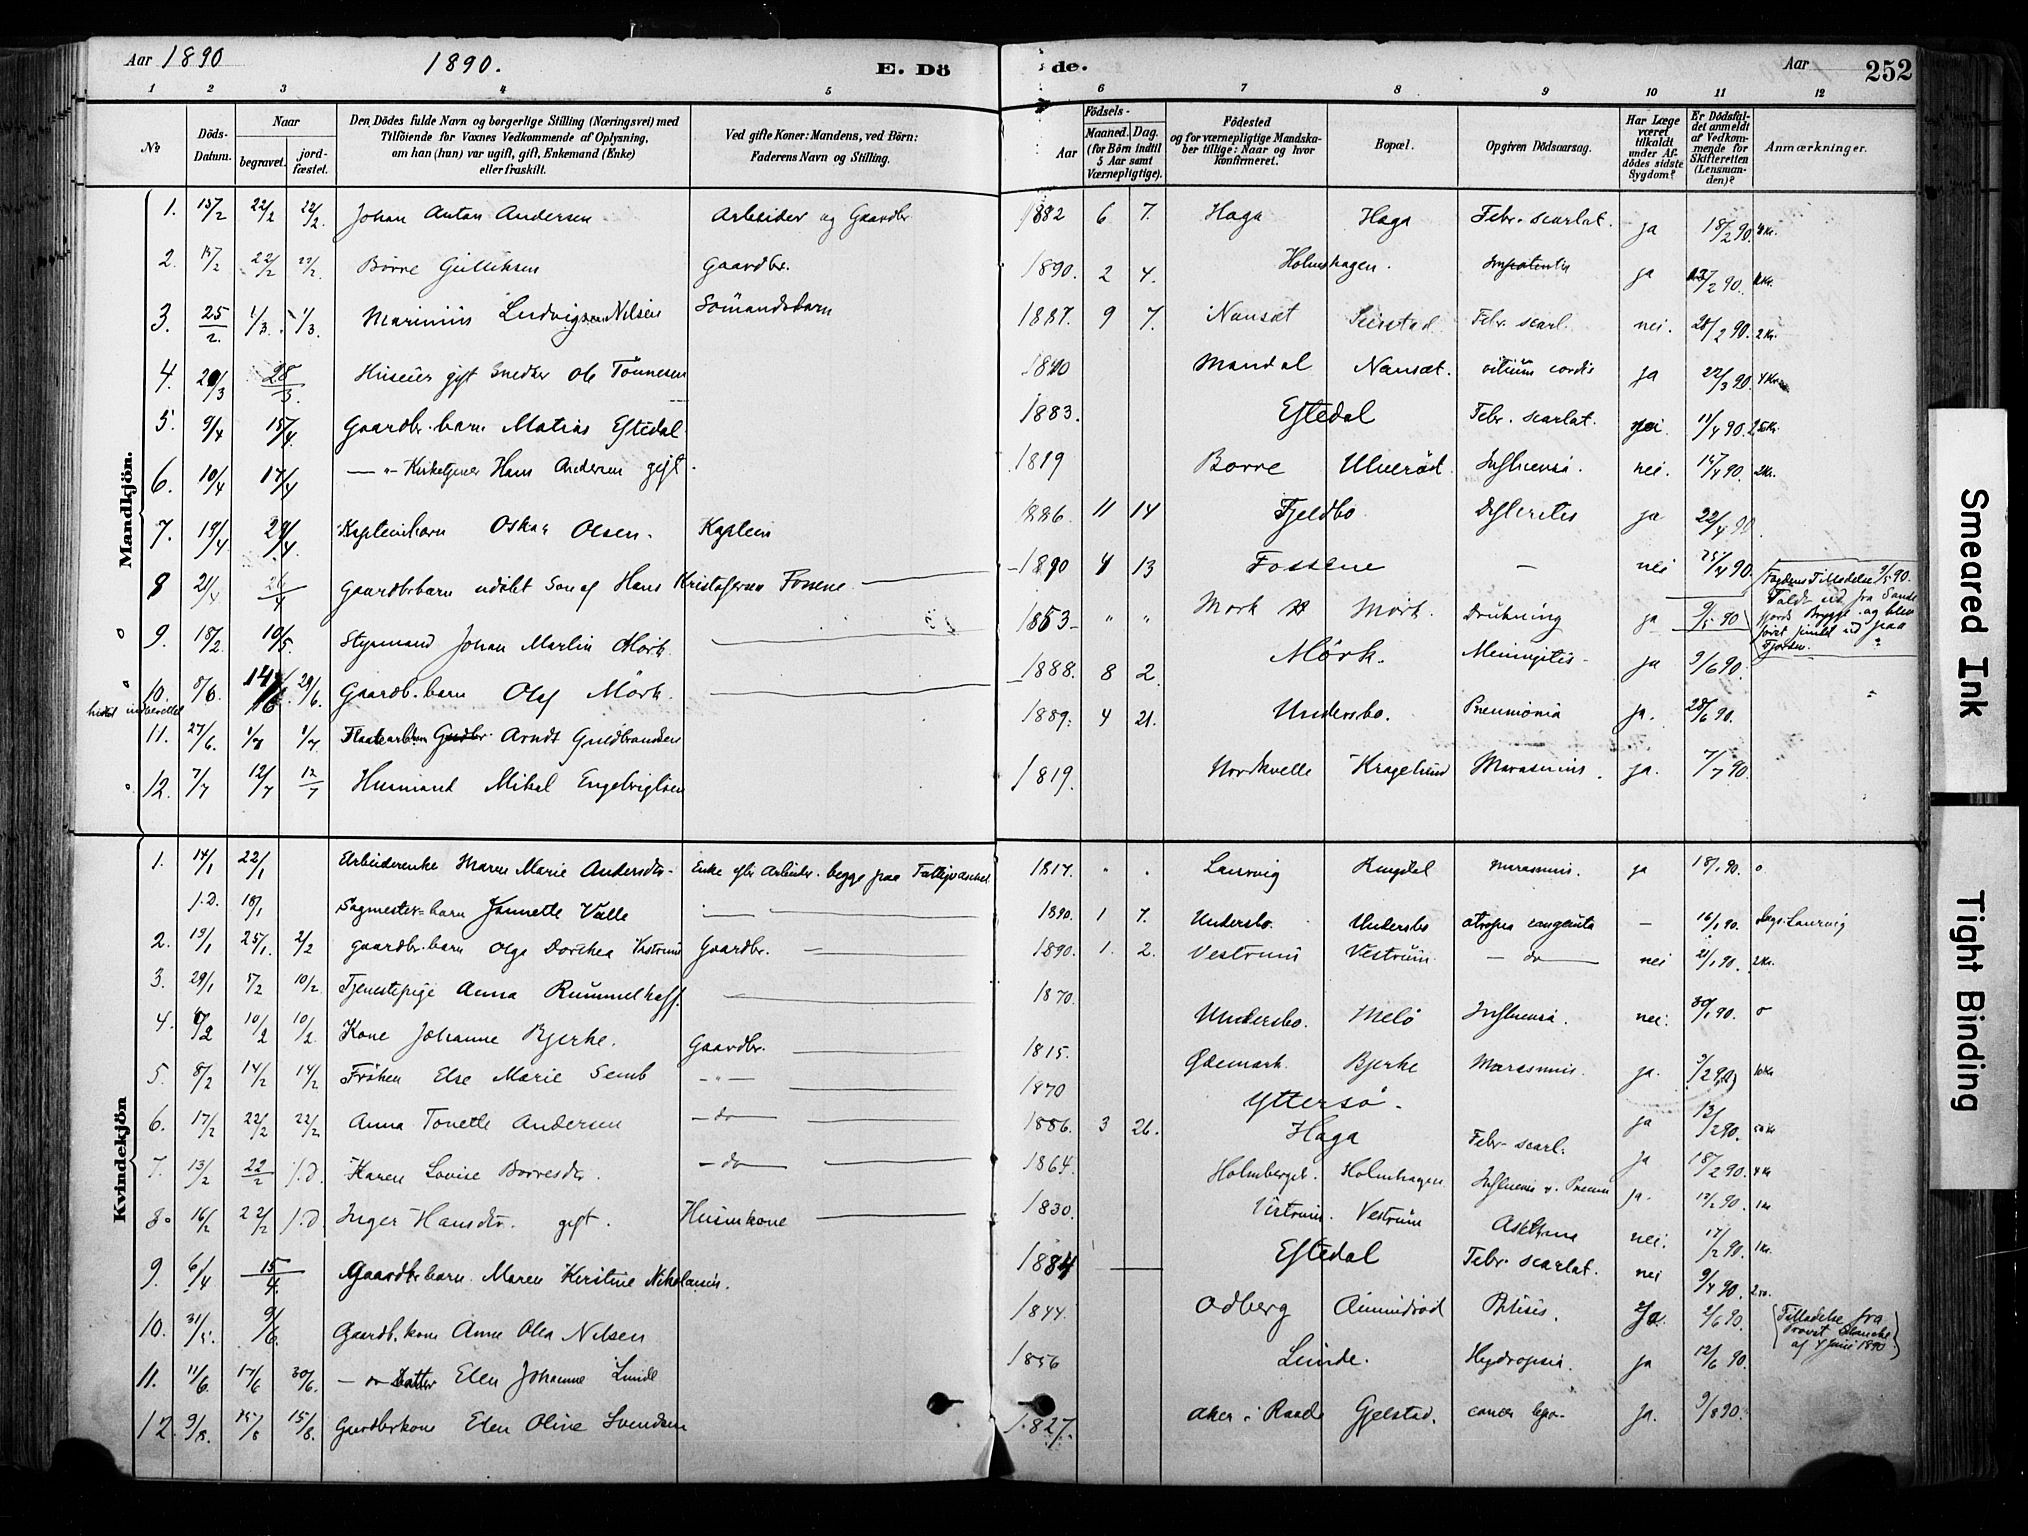 Aar 1890
1890.
E. Dö
de.
Aar
252
1 2 3 4 5 6 7 8 9 10 11 12
No
Döds-Datum.
Naar
begravet.
jord-fæstet.
Den Dödes fulde Navn og borgerlige Stilling (Næringsvei) med
Tilföiende for Voxnes Vedkommende af Oplysning,
om han (hun) var ugift, gift, Enkemand (Enke)
eller fraskilt.
Ved gifte Koner: Mandens, ved Börn:
Faderens Navn og Stilling.
Födsels-
Aar
Maaned. Dag.
(for Börn indtil
5 Aar samt
Værnepligtige).
Födested
og for værnepligtige Mandska-
ber tillige: Naar og hvor
konfirmeret.
Bopæl.
Opgiven Dödsaarsag.
Har Læge
været
tilkaldt
under Af-
dödes sidste
Sygdom?
Er Dödsfal-
det anmeldt
af Vedkom-
mende for
Skifteretten
(Lensman-
den)?
Anmærkninger.
Mandkjön.
1. 15/2 22/2 22/2. Johan Anton Andersen Arbeider og Gaardbr 1882 6 7. Haga Haga Febr. scarlat. ja 18/2 90. 4 Kr.
2. 15/2 22/2 22/2. Börre Gulliksen Gaardbr. 1890. 2 4. Holmhagen. ja /2 90.
3. 25/2. 1/3. 1/3. Marinius Ludvigsen Nilsen Sömandsbarn 1887. 9 7. Nansæt Febr. scarl. nei. 28/2 90. 2 Kr.
4. 20/3 28/3. Huseier gift Snedker Ole Tönnesen 1840 Mandal Nansæt. vitium cordis ja 22/3 90. 4 Kr
5. 9/4 15/4. Gaardbr. barn Matias Eftedal 1883. Eftedal Febr. scarlat. nei. 11/4 90.
6. 10/4 17/4 — " Kirketjener Hans Andersen gift. 1819 Borre Ulveröd Influensa. nei. 15/4 90. 2 Kr.
7. 19/4 29/4. Kapteinbarn Oskar Olsen. Kaptein 1886. 11 14 Fjeldbo Difteritis ja 22/4 90.
8 21/4 26/4 Gaardbrbarn udöbt Sön af Hans Kristofersen Fossene 1890 4 13 Fossene — nei 25/4 90.
Fogdens Tilladelse 9/5 90.
Faldt ud fra Sande
fjords Brygge og blev
fjorden.
9. 18/2. 10/5. Styrmand Johan Martin Mörk 1853 " " Mörk Mörk. Drukning ja 9/5 90
10. 8/6 14/6 29/6. Gaardb. barn Olaf Mörk 1888. 8 2. Mörk. Meningitis ja 9/6 90.
11. 27/6. 1/7 1/7. Arndt Guldbrandsen 1889. 4 21. Undersbo. Pneumonia ja. 28/6 90.
12. 7/7 12/7 12/7 Husmand Mikal Engebrigtsen 1819. Nordkvelle Kragelund Marasmus. ja. 7/7 90.
Kvindekjön
1. 14/1 22/1 Arbeiderenke Maren Marie Andersdtr. Enke efter Arbeider. begge paa Fattigvæsenet 1817. " . Laurvig Ringdal marasmus. ja 18/1 90. 0
f.D. 18/1 Sagmester-barn Jannette Valle 1890. 1 7. Undersbo. Undersbo atropia congenita — 16/1 90. Begr. Laurvig
2. 19/1 25/1. 2/2 gaardbr. barn Olga Dorthea Vestrum Gaardbr. 1890. 1. 2. Vestrum Vestrum. — do — nei 21/1 90. 2 Kr.
3. 29/1 5/2 10/2 Tjenestepige Anna Rummelhoff. 1870. Undersbo. Melö Influensa. nei. 30/1 90. 0
4. 10/2 10/2. Kone Johanne Bjerke. Gaardbr. 1815. Ødemark. Bjerke Marasmus. ja. 3/2 90
5. 8/2 14/2 14/2 Fröken Else Marie Semb — " — 1870 Yttersö. ja 12/2 90.
6. 17/2 22/2 22/2 Anna Tonette Andersen — do — 1886. 3 26. Haga Febr. scarl. ja 18/2 90. 4 Kr
7. 13/2 22/2 f.D. Karen Lovise Borresdtr. — do — 1864. Holmberget. Holmhagen. Influensa ja. 17/2 90. 1 Kr
8. 16/2 22/2 f.D. Inger Hansdtr. gift. Husmkone 1830. Vestrum. Vestrum Asthma nei. 17/2 90. 1 Kr.
9. 6/4 15/4. Gaardbrbarn. Maren Kirstine Nikolaisen. 1884 Eftedal Febr. scarlat. nei 9/4 90.
10. 31/5. 9/6. Gaardb. kone Anne Olea Nilsen 1844. Odberg Amundröd Ptisis. Ja. 2/6 90.
Tilladelse fra
Provst
af 4 Juni 1890
11. 11/6. 17/6 30/6. — " Datter Elen Johanne Lunde 1856 Lunde. Hydropsia. ja 12/6 90.
12. 9/8. 15/8 15/8. Gaardbrkone Elen Oline Svendsen 1827. Aker i Raade Gjelstad. cancer hepa. ja. 9/8 90.
Smeared Ink
Tight Binding